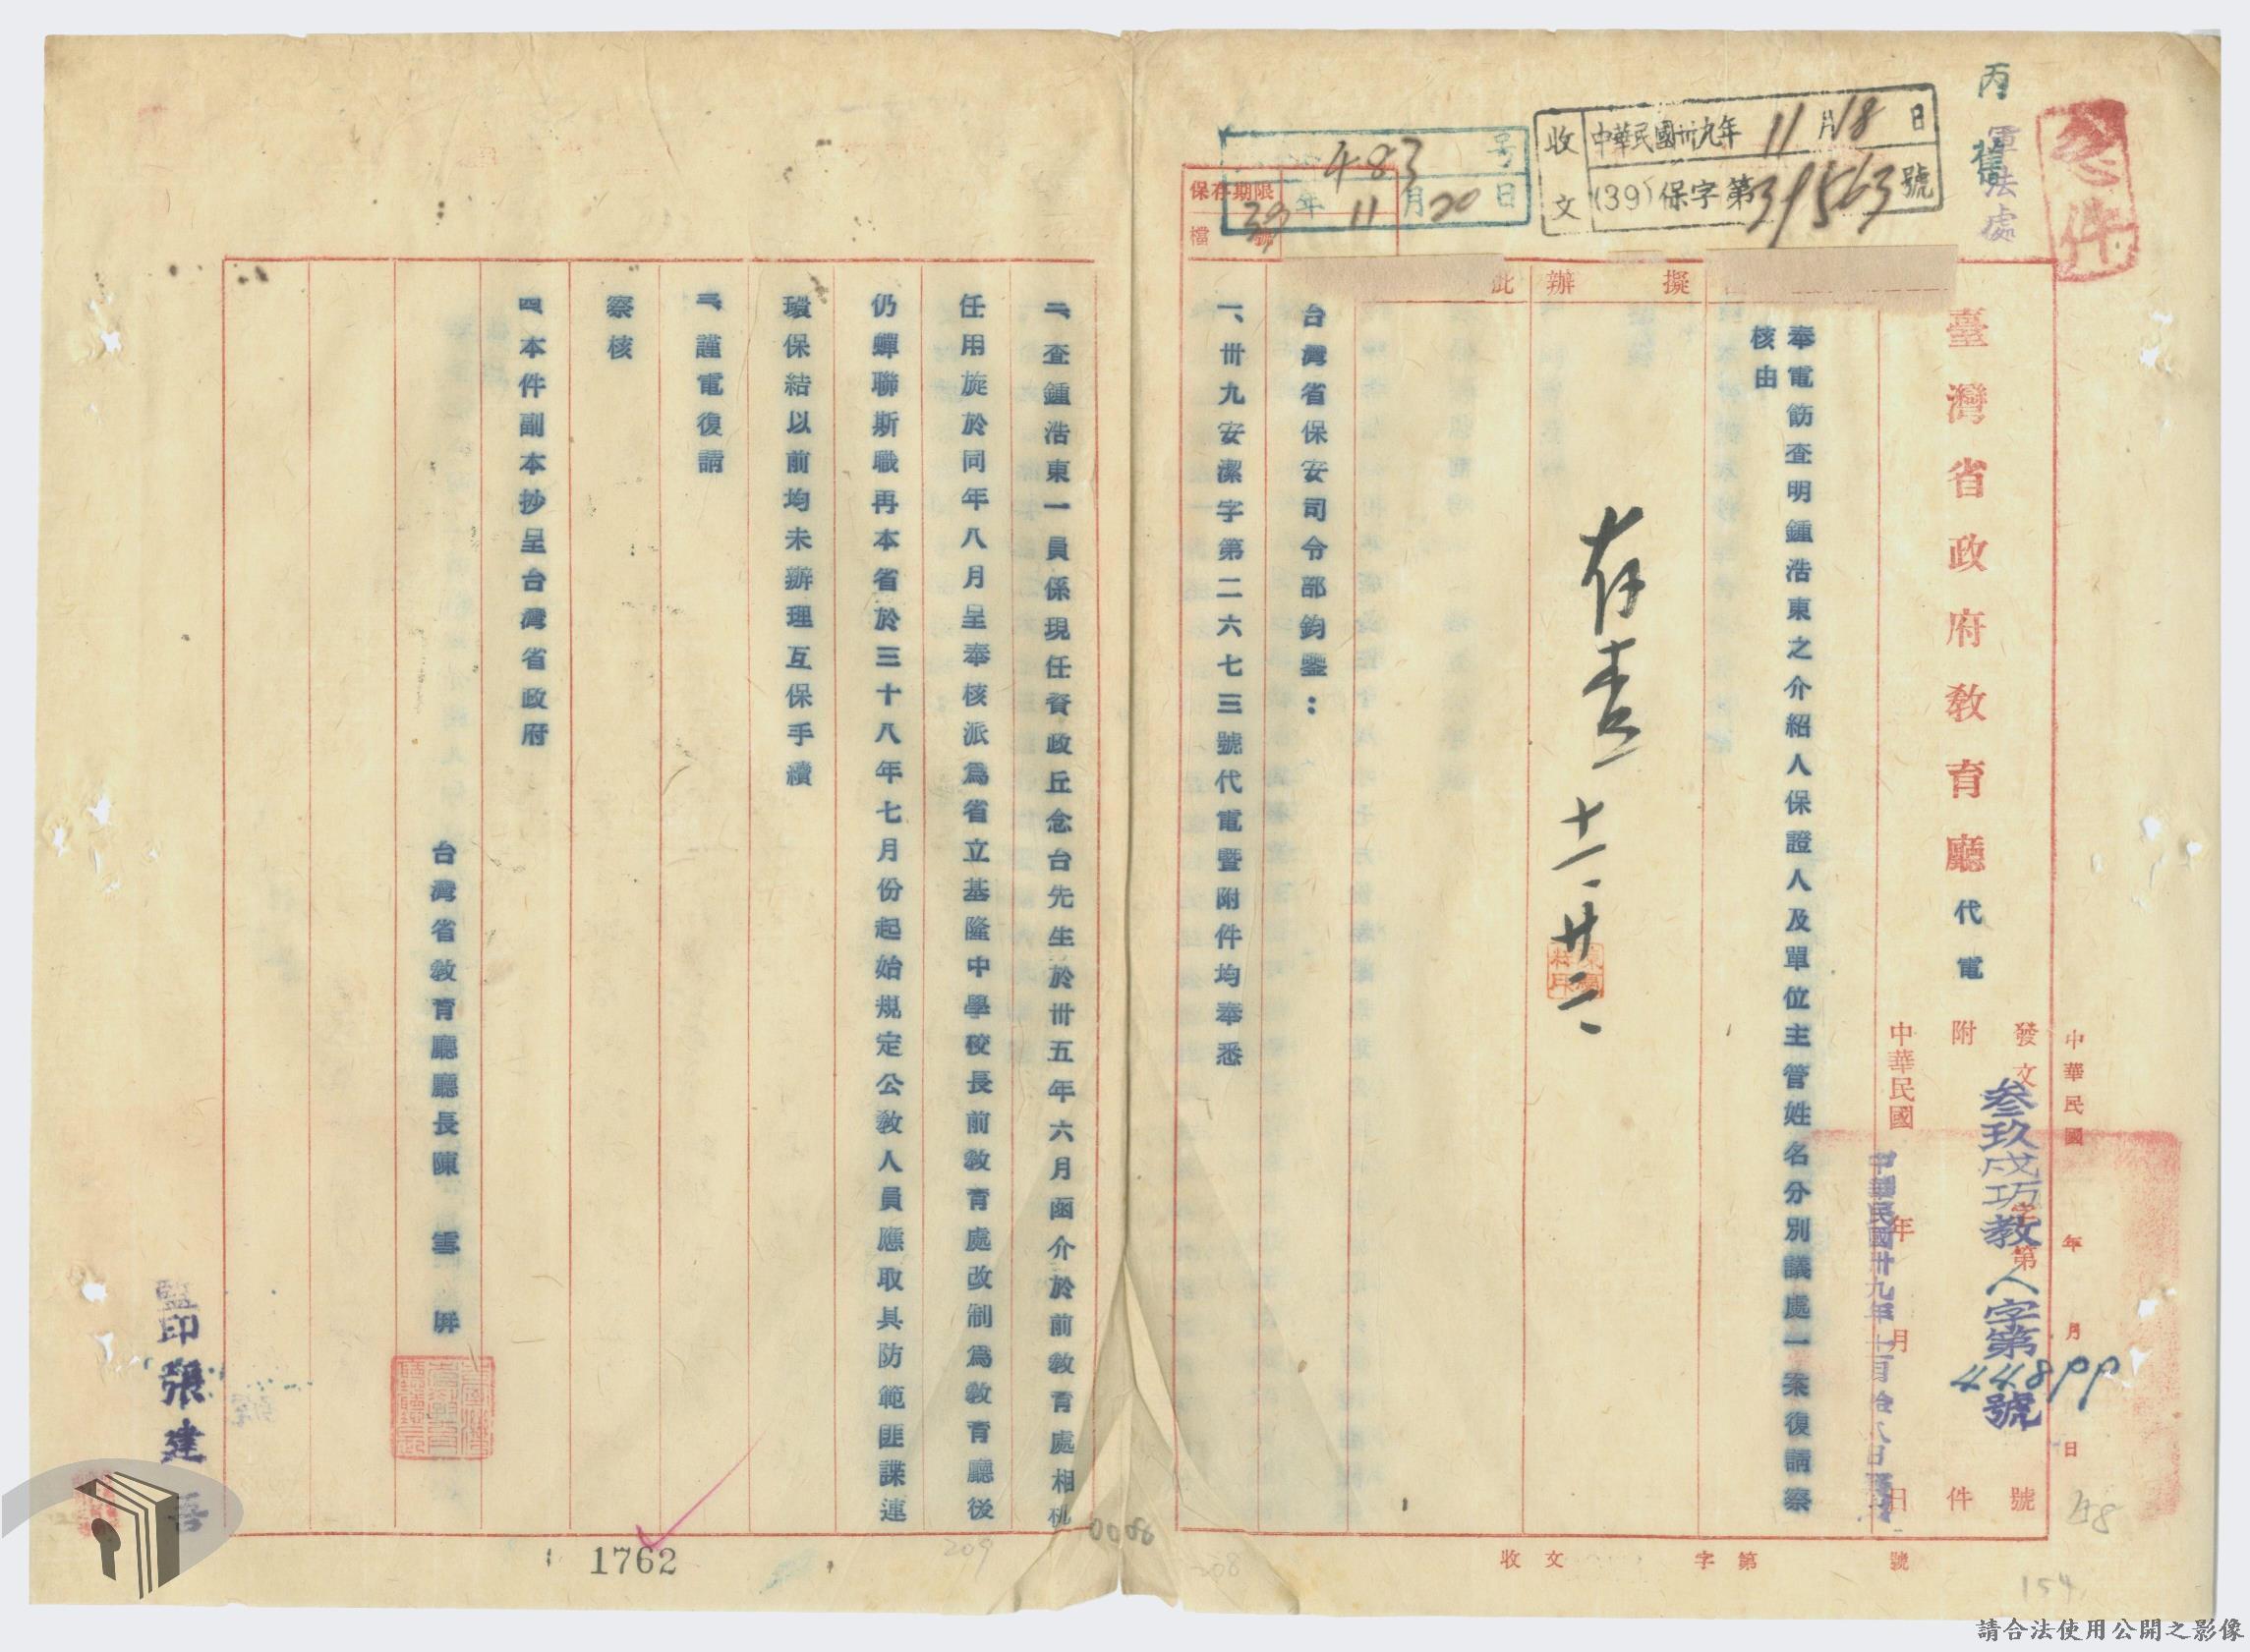 急件
丙
軍法處
收文
中華民國卅九年11月18日
(39)保字第31563號
483号
39年11月20日
保存期限
檔號
擬辦
臺灣省政府教育廳代電
中華民國 年 月 日
發文 字第 號
叁玖戌巧教人字第 號
附 件
中華民國 年 月 日
奉電飭查明鍾浩東之介紹人保證人及單位主管姓名分別議處一案復請察
核由
存查 十一.廿二
台灣省保安司令部鈞鑒：
一、卅九安潔字第二六七三號代電暨附件均奉悉
二、查鍾浩東一員係現任資政丘念台先生於卅五年六月函介於前教育處相機
任用旋於同年八月呈奉核派為省立基隆中學校長前教育處改制為教育廳後
仍蟬聯斯職再本省於三十八年七月份起始規定公教人員應取具防範匪諜連
環保結以前均未辦理互保手續
三、謹電復請
察核
四、本件副本抄呈台灣省政府
台灣省教育廳廳長陳雪屏
監印張建
收文 字第 號
48
154
208
209
0086
1762
請合法使用公開之影像